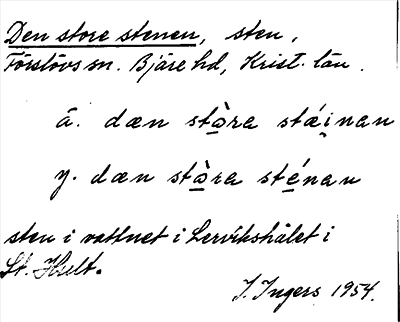 Den store stenen, sten,
Förslövs sn. Bjäre hd, Krist. län.
ä. dæn stòra stǽi̯nan
y. dæn stòra sténan
sten i vattnet i Lervikshålet i
St. Hult.
I. Ingers 1954.